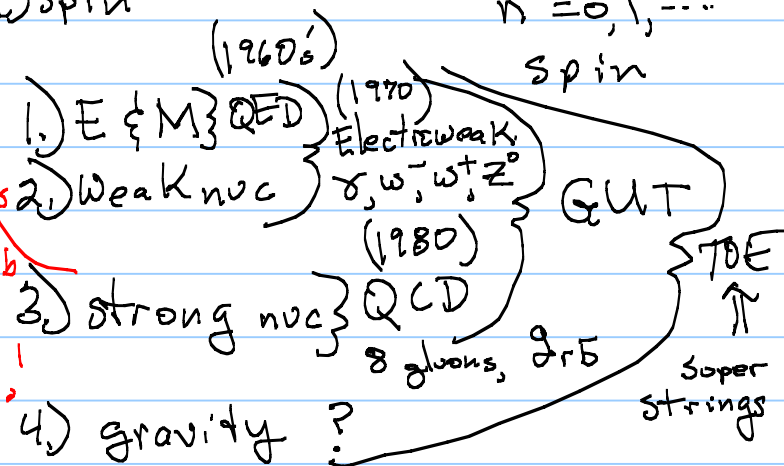 spin
n = 0, 1, ...
(1960s')
spin
1.) E & M} QED
(1970)
Electroweak
2.) Weak nuc
γ, w⁻, w⁺, z⁰
GUT
(1980)
TOE
b
3.) strong nuc} QCD
⇑
8 gluons, g r b̄
super
strings
4.) gravity ?